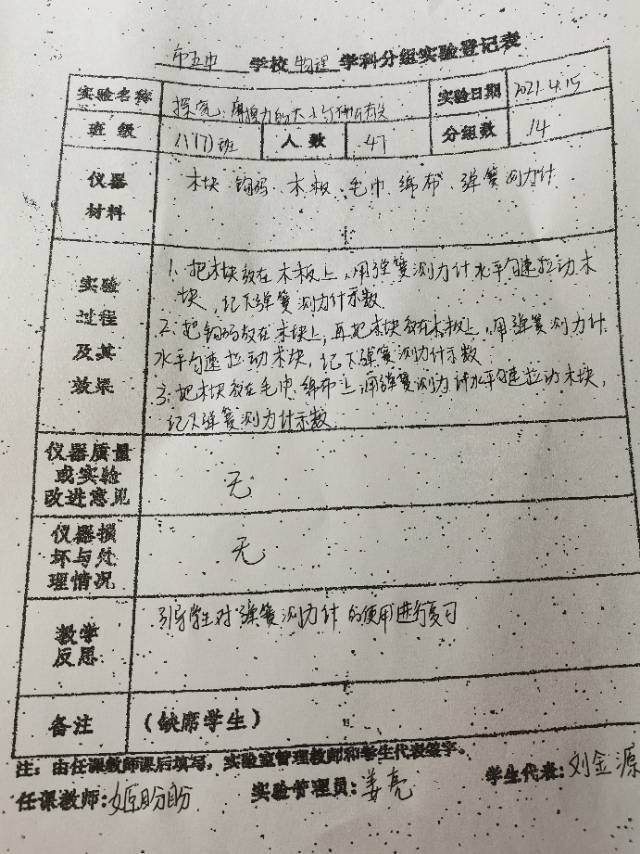 市五中 学校 物理 学科分组实验登记表
实验名称 探究:摩擦力的大小与何有关 实验日期 2021.4.15
班级 八(17)班 人数 47 分组数 14
仪器材料 木块、钩码、木板、毛巾、绵布、弹簧测力计
实验过程及其效果
1、把木块放在木板上,用弹簧测力计水平匀速拉动木
块,记下弹簧测力计示数
2、把钩码放在木块上,再把木块放在木板上,用弹簧测力计
水平匀速拉动木块,记下弹簧测力计示数
3、把木块放在毛巾、绵布上,用弹簧测力计水平匀速拉动木块,
记下弹簧测力计示数
仪器质量或实验改进意见 无
仪器损坏与处理情况 无
教学反思 引导学生对弹簧测力计的使用进行复习
备注 (缺席学生)
注:由任课教师课后填写,实验室管理教师和学生代表签字。
任课教师:姬盼盼 实验管理员:姜亮 学生代表:刘金源